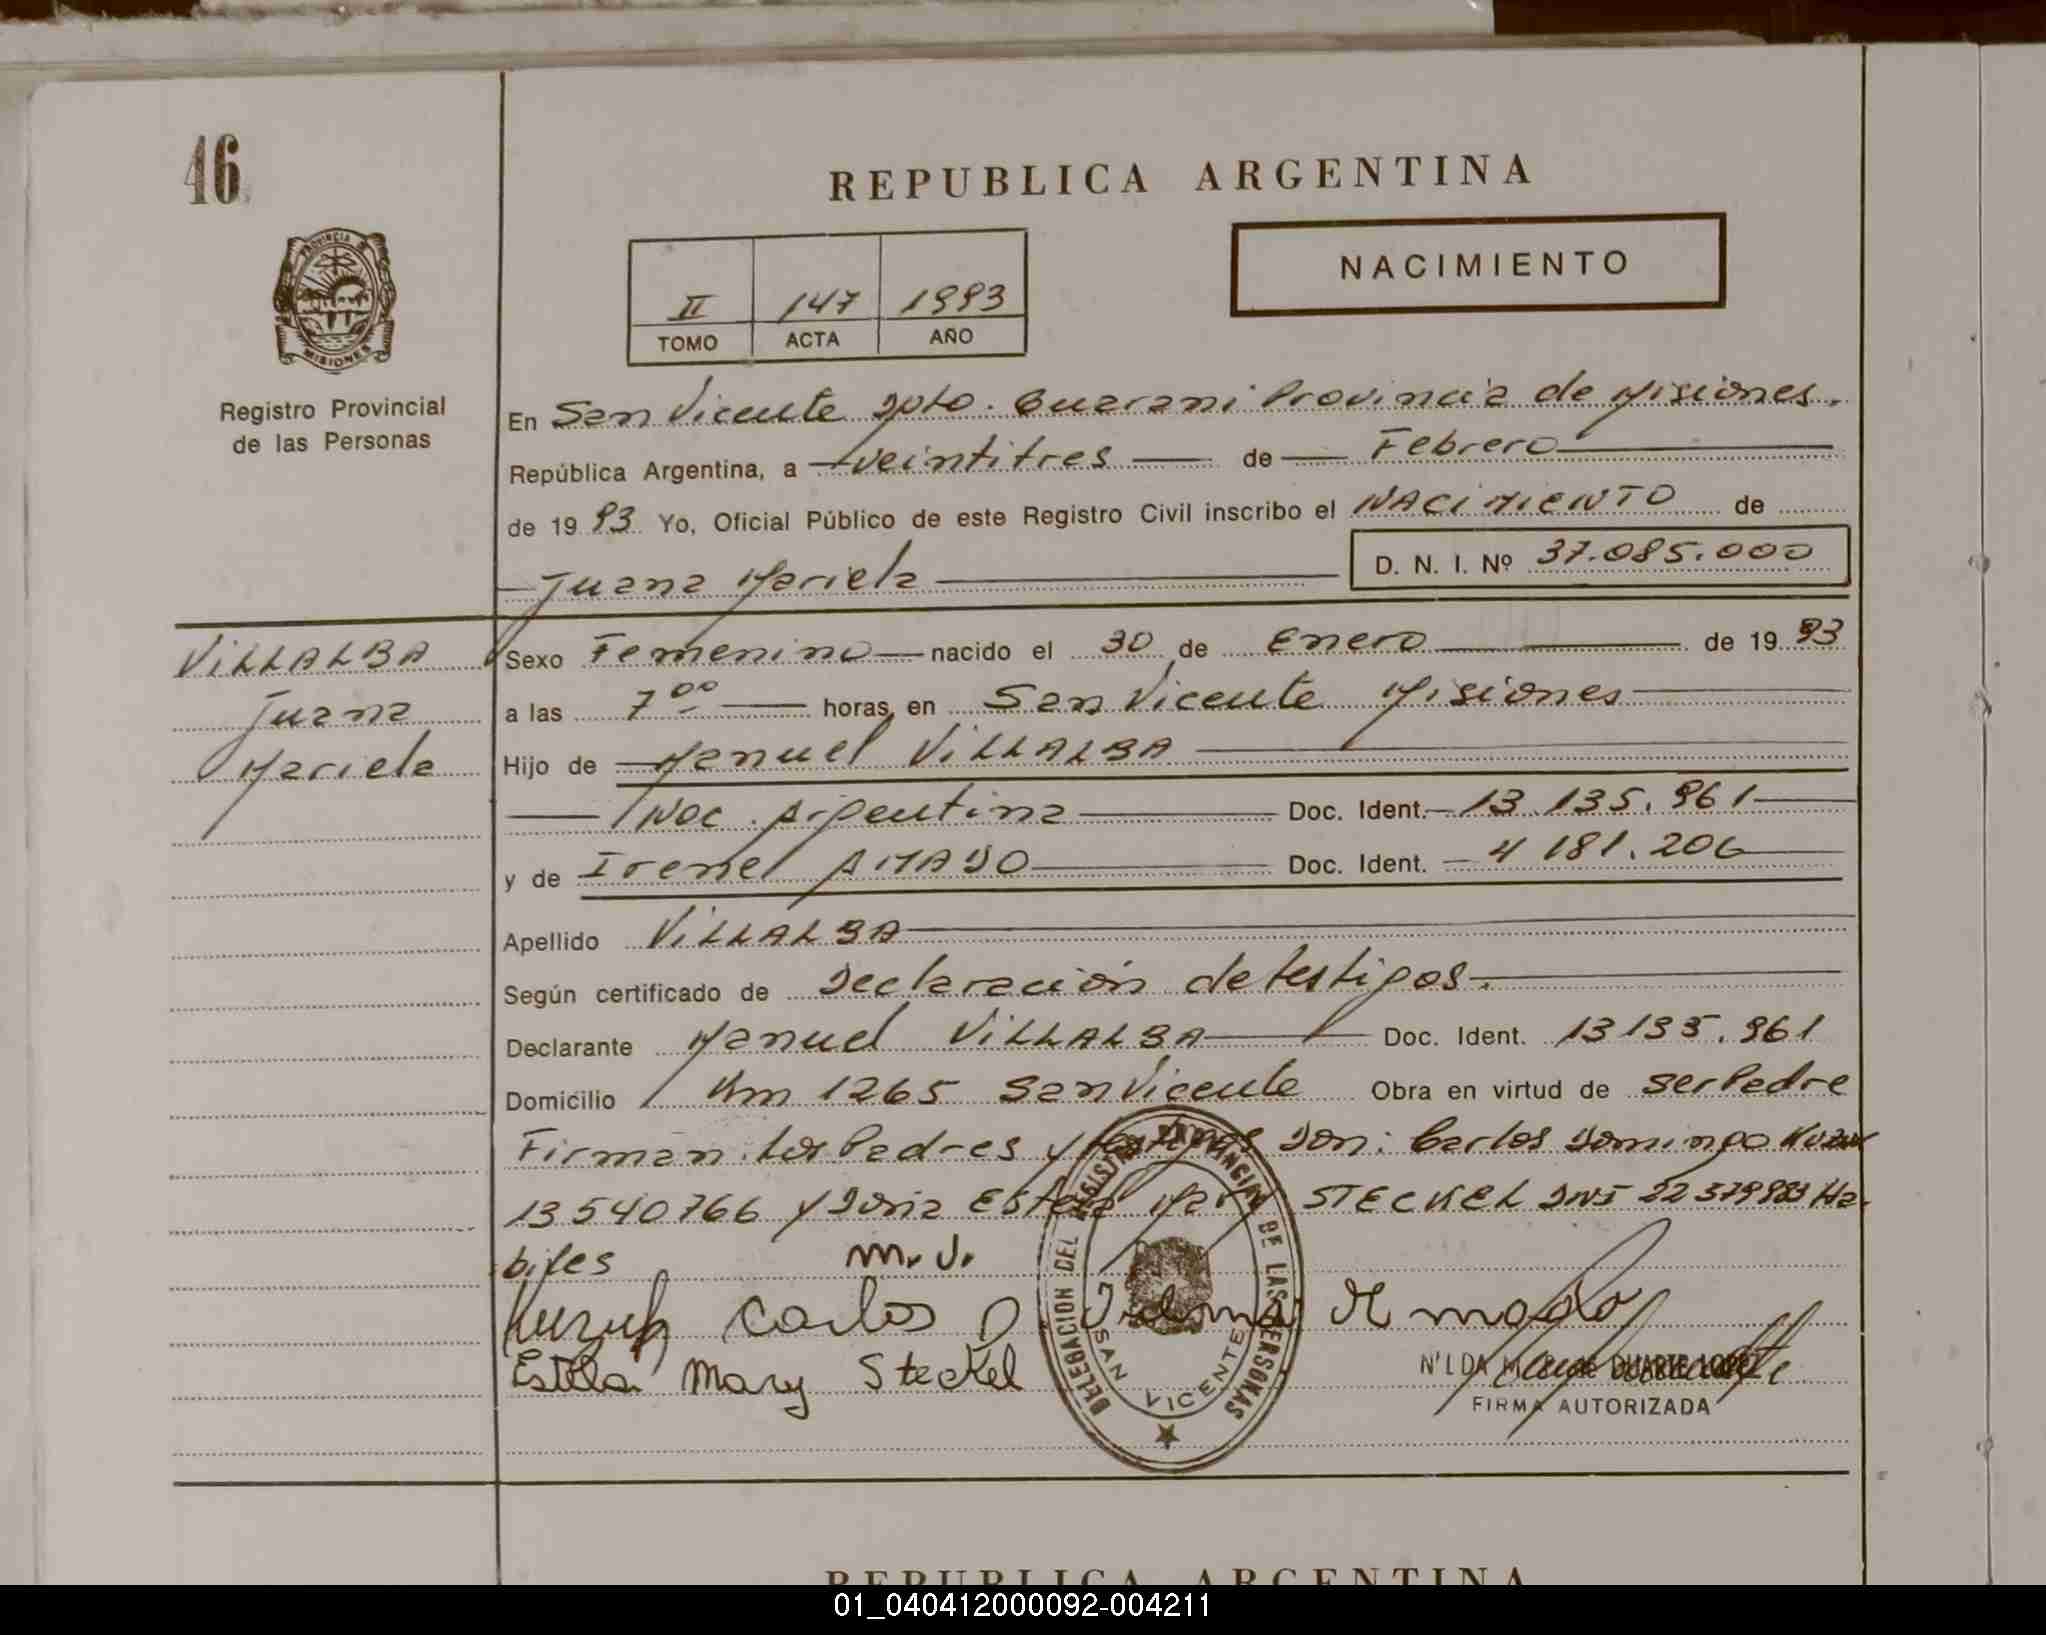 46
REPUBLICA ARGENTINA
NACIMIENTO
II 147 1993
TOMO ACTA AÑO
PROVINCIA DE MISIONES
Registro Provincial
de las Personas
En San Vicente Dpto. Guarani Provincia de Misiones.
República Argentina, a veintitres de Febrero
de 1993 Yo, Oficial Público de este Registro Civil inscribo el NACIMIENTO de
Juana Mariela D. N. I. Nº 37.085.000
VILLALBA
Juana
Mariela
Sexo Femenino nacido el 30 de Enero de 1993
a las 7 00 horas en San Vicente Misiones
Hijo de Manuel VILLALBA
Nac. Argentina Doc. Ident. 13.135.961
y de Irene AMADO Doc. Ident. 4 181.206
Apellido VILLALBA
Según certificado de Declaración de testigos.
Declarante Manuel VILLALBA Doc. Ident. 13 135.961
Domicilio Km 1265 San Vicente Obra en virtud de ser Padre
Firman los Padres y testigos Don: Carlos Domingo
13540766 y Doña Estela Mary STECKEL DNI Ha-
biles m.v.
Carlos D. Amado
Estela Mary Steckel
DUARTE LOPEZ
FIRMA AUTORIZADA
DELEGACION DEL REGISTRO PROVINCIAL DE LAS PERSONAS
SAN VICENTE
REPUBLICA ARGENTINA
01_040412000092-004211